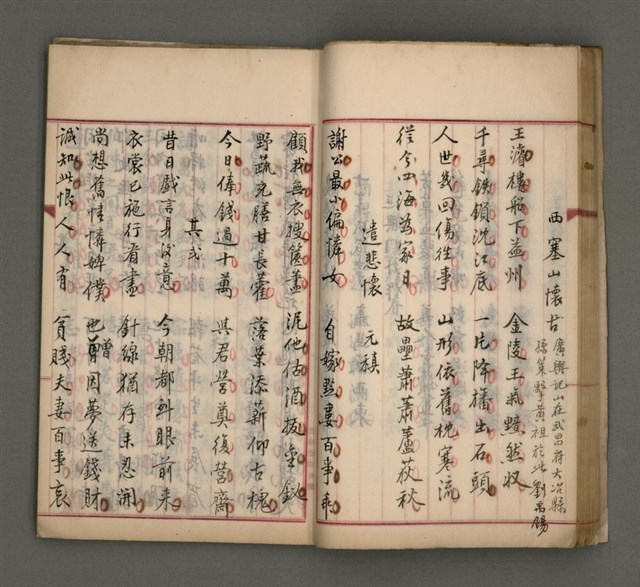 西塞山懷古 廣輿記山在武昌府大冶縣
孫策擊黃祖於此 劉禹錫
王濬樓船下益州 金陵王氣黯然收
千尋鉄鎖沈江底 一片降旛出石頭
人世幾回傷徃事 山形依舊枕寒流
從今四海爲家日 故壘蕭蕭蘆荻秋
遣悲懷 元稹
謝公最小偏憐女 自嫁黔婁百事乖
顧我無衣搜藎篋 泥他估酒拔金釵
野蔬充膳甘長藿 落葉添薪仰古槐
今日俸錢過十萬 與君營奠復營齋
其弍
昔日戲言身後意 今朝都到眼前來
衣裳已施行看盡 針線猶存未忍開
尚想舊情憐婢僕 也曾因夢送錢財
誠知此恨人人有 貧賤夫妻百事哀